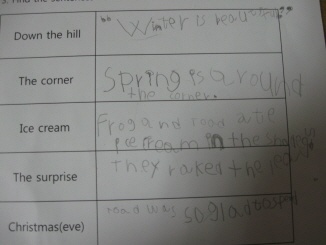 Down the hill
Winter is beautiful
The corner
Spring is around
the corner.
Ice cream
Frog and toad ate
ice cream in the
The surprise
They raked the
Christmas(eve)
toad was so glad